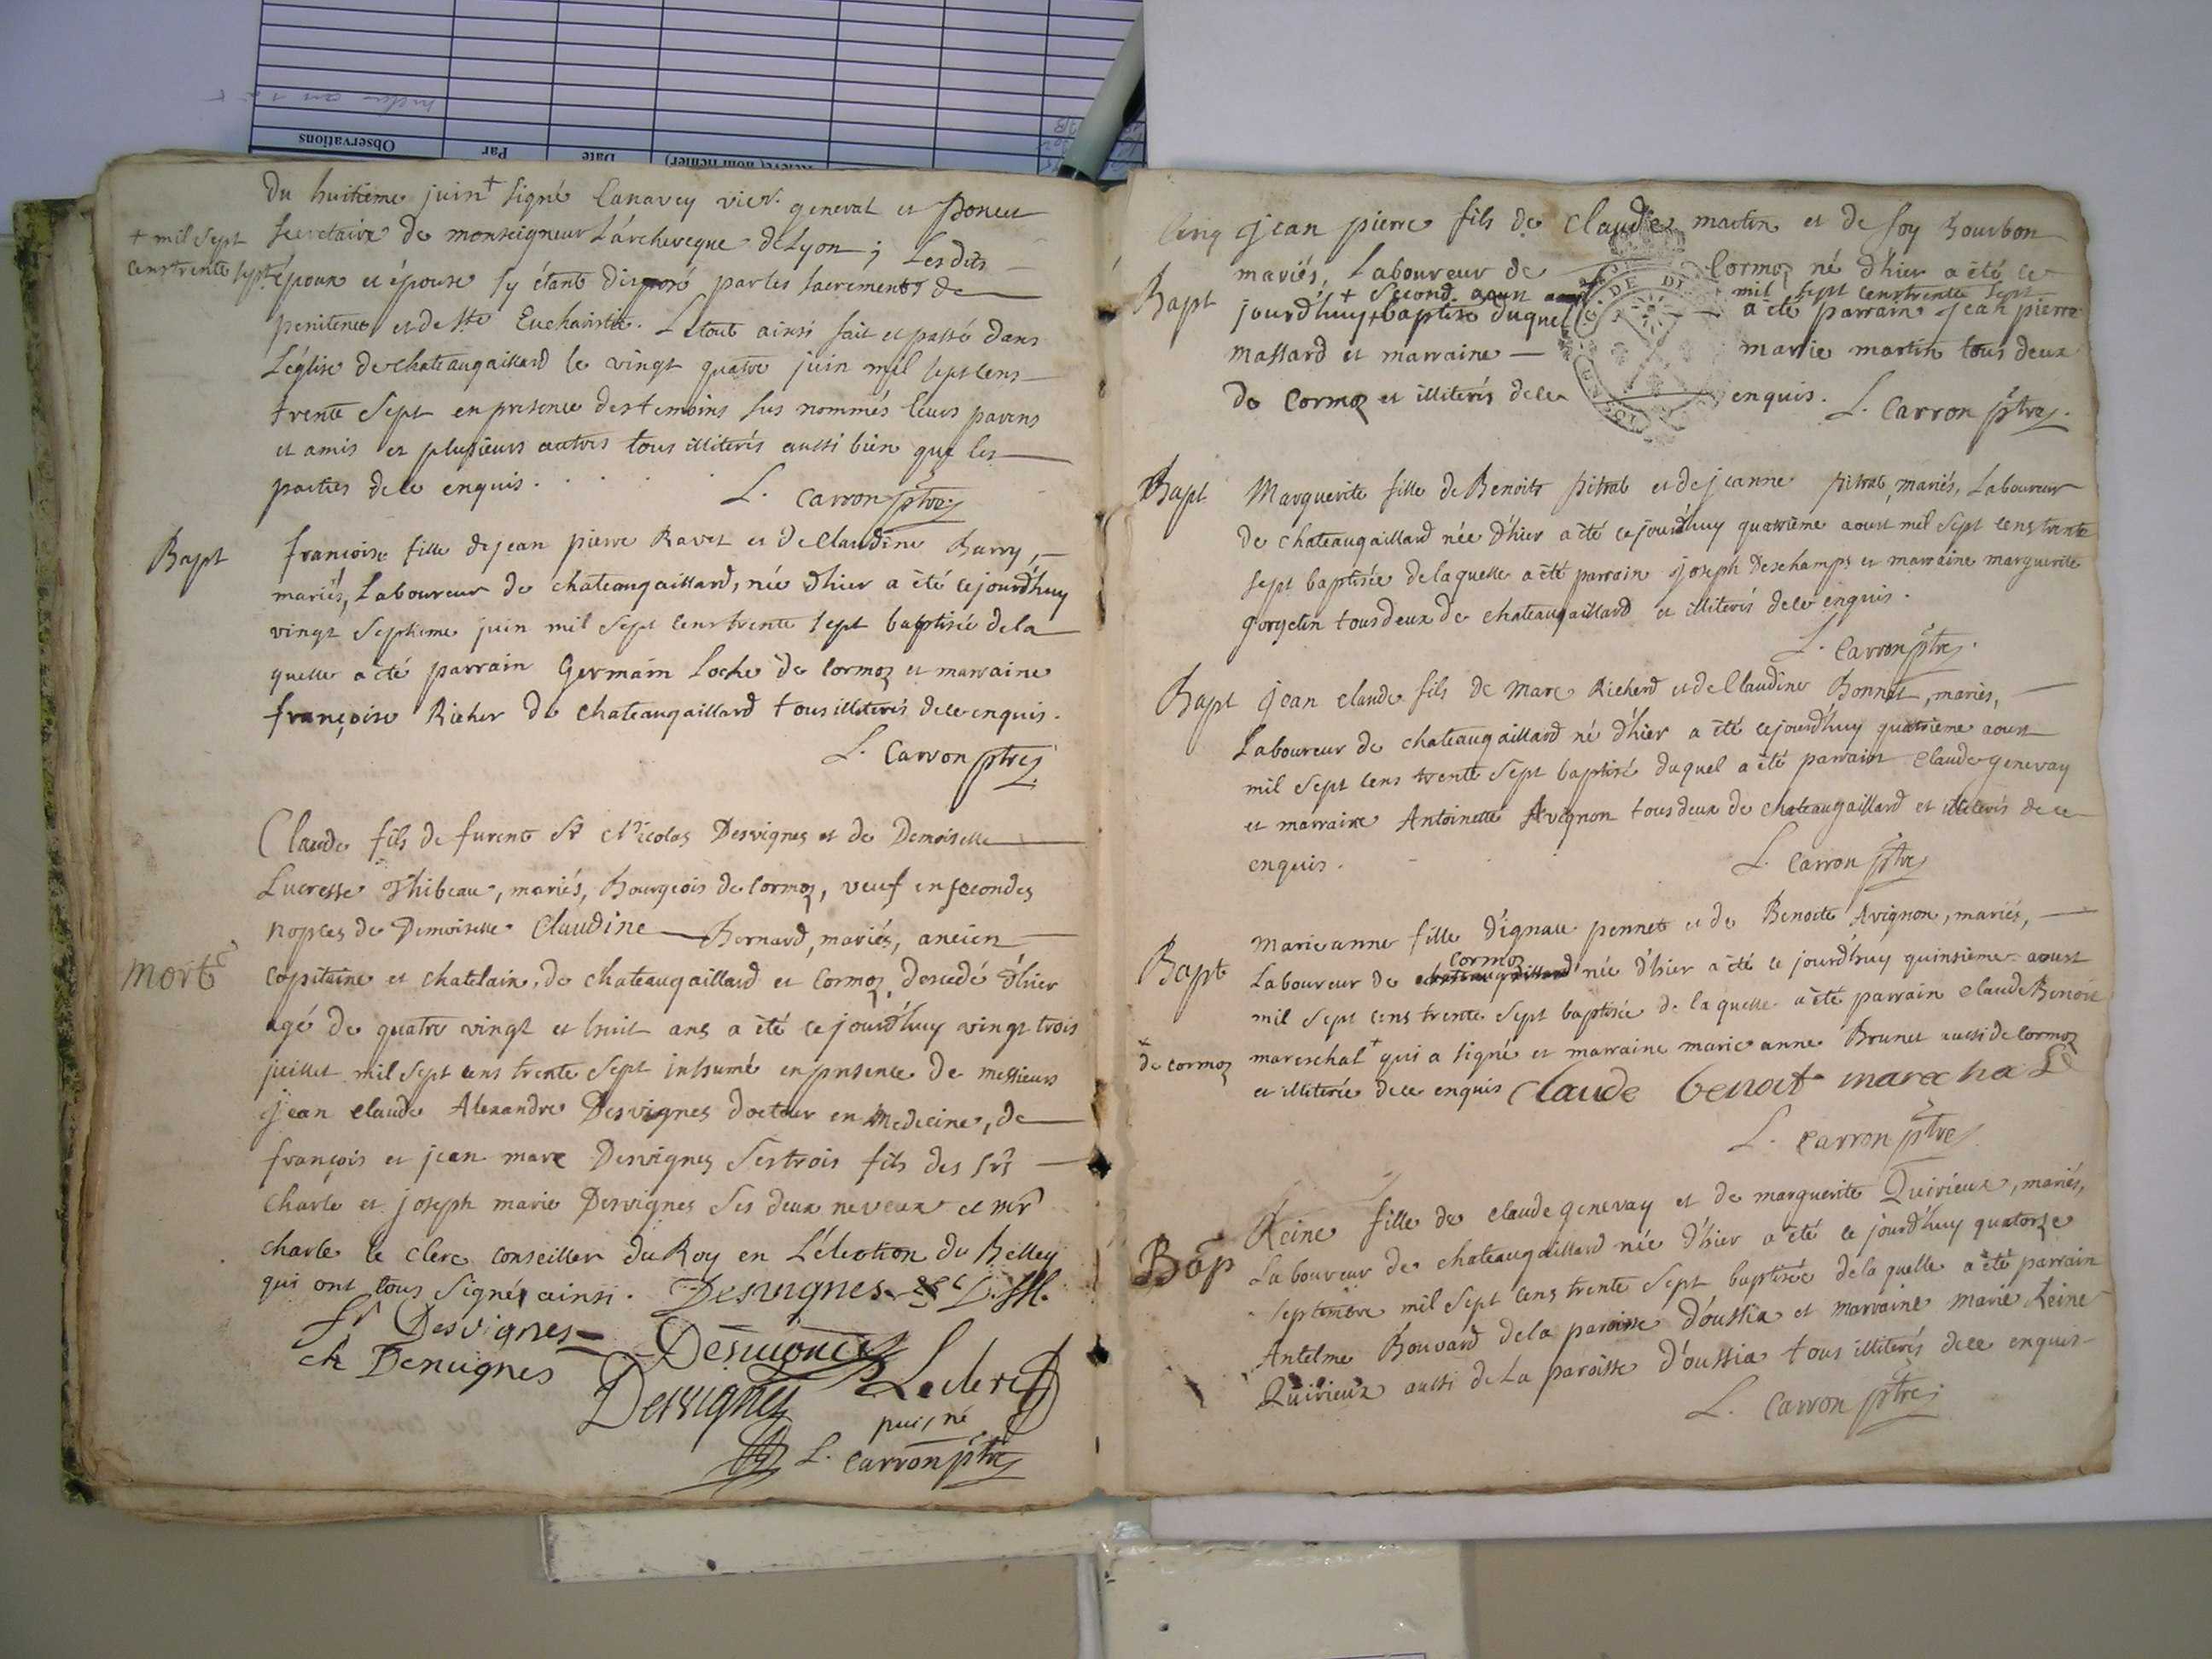 Observations
Par
Date
du huitieme juin + signé Canavey vicr. general et Poncet
+ mil sept
cens trente sept
secretaire de monseigneur L'archeveque de Lyon ; Lesdits
époux et épouse s'y étant disposé par les sacrements de
penitence et de Ste Eucharistie. Le tout ainsi fait et passé dans
L'église de chateaugaillard le vingt quatre juin mil sept cens
trente sept en presence des temoins sus nommés leurs parens
et amis et plusieurs autres tous illiterés aussi bien que les
parties de ce enquis. L. Carron ptre
Bapt
francoise fille de jean pierre Ravet et de Claudine Barry,
mariés, Laboureur de chateaugaillard, née d'hier a été cejourd'huy
vingt septieme juin mil sept cens trente sept baptisée de la
quelle a été parrain Germain Loche de Cormoz et marraine
françoise Richer de chateaugaillard tous illiterés de ce enquis.
L. Carron ptre
Claude fils de furent Sr Nicolas Desvignes et de Demoiselle
Lucresse Thibeau, mariés, Bourgeois de Cormoz, veuf en secondes
nopces de Demoiselle Claudine Bernard, mariés, ancien
Morte
capitaine et chatelain de chateaugaillard et Cormoz, desedé d'hier
agé de quatre vingt et huit ans a été ce jourd'huy vingt trois
juillet mil sept cens trente sept inhumé en presence de messieurs
jean claude Alexandre Desvignes docteur en Medecine, de
françois et jean marc Desvignes ses trois fils des srs
Charle et joseph marie Desvignes ses deux neveux et mr
charle le clerc conseiller du Roy en L'élection du Belley
qui ont tous signés ainsi. Desvignes
fr Desvignes
ch Desvignes
Desvignes
Desvignes Leclerc
puisné
L. Carron ptre
cinq
jean pierre fils de claude martin et de foy Bourbon
Bapt
mariés, Laboureur de Cormoz né d'hier a été ce
+ second aoust mil sept cens trente sept
jourd'huy + baptise duquel a été parrain jean pierre
massard et marraine marie martin tous deux
de Cormoz et illiterés de ce enquis. L. Carron ptre.
Bapt
Marguerite fille de Benoits pitrat et de jeanne pitrat, mariés, Laboureur
de chateaugaillard née d'hier a été cejourd'huy quatrième aoust mil sept cens trente
sept baptisée de laquelle a été parrain joseph Deschamps et marraine marguerite
gorgelin tous deux de chateaugaillard et illiterés de ce enquis.
L. Carron ptre.
Bapt
jean claude fils de Marc Richerd et de Claudine Bonnet, mariés,
Laboureur de chateaugaillard né d'hier a été cejourd'huy quatrieme aoust
mil sept cens trente sept baptisé duquel a été parrain claude genevay
et marraine Antoinette Avignon tous deux de chateaugaillard et illiterés de ce
enquis. L. Carron ptre
Bapt
Marie anne fille d'ignace pennet et de Benoite Avignon, mariés,
Cormoz
Laboureur de chateaugaillard née d'hier a été ce jourd'huy quinsieme aoust
mil sept cens trente sept baptisée de la quelle a été parrain claude Benoit
de cormoz
mareschal + qui a signé et marraine marie anne Brunet aussi de Cormoz
et illiterée de ce enquis claude benoit marechalé
L. Carron ptre
Bap
Reine fille de claude genevay et de marguerite Quirieux, mariés,
Laboureur de chateaugaillard née d'hier a été ce jourd'huy quatorze
septembre mil sept cens trente sept baptisée de la quelle a été parrain
Antelme Bouvard de la paroisse d'oussia et marraine marie Reine
Quirieux aussi de La paroisse d'oussia tous illiterés de ce enquis
L. Carron ptre